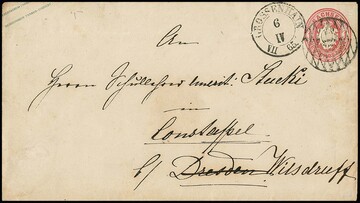 GROSSENHAIN
9
IV
VII
An
Herrn Schullehrer emerit: Stucki
in
Constappel
b/ Dresden Wilsdruff